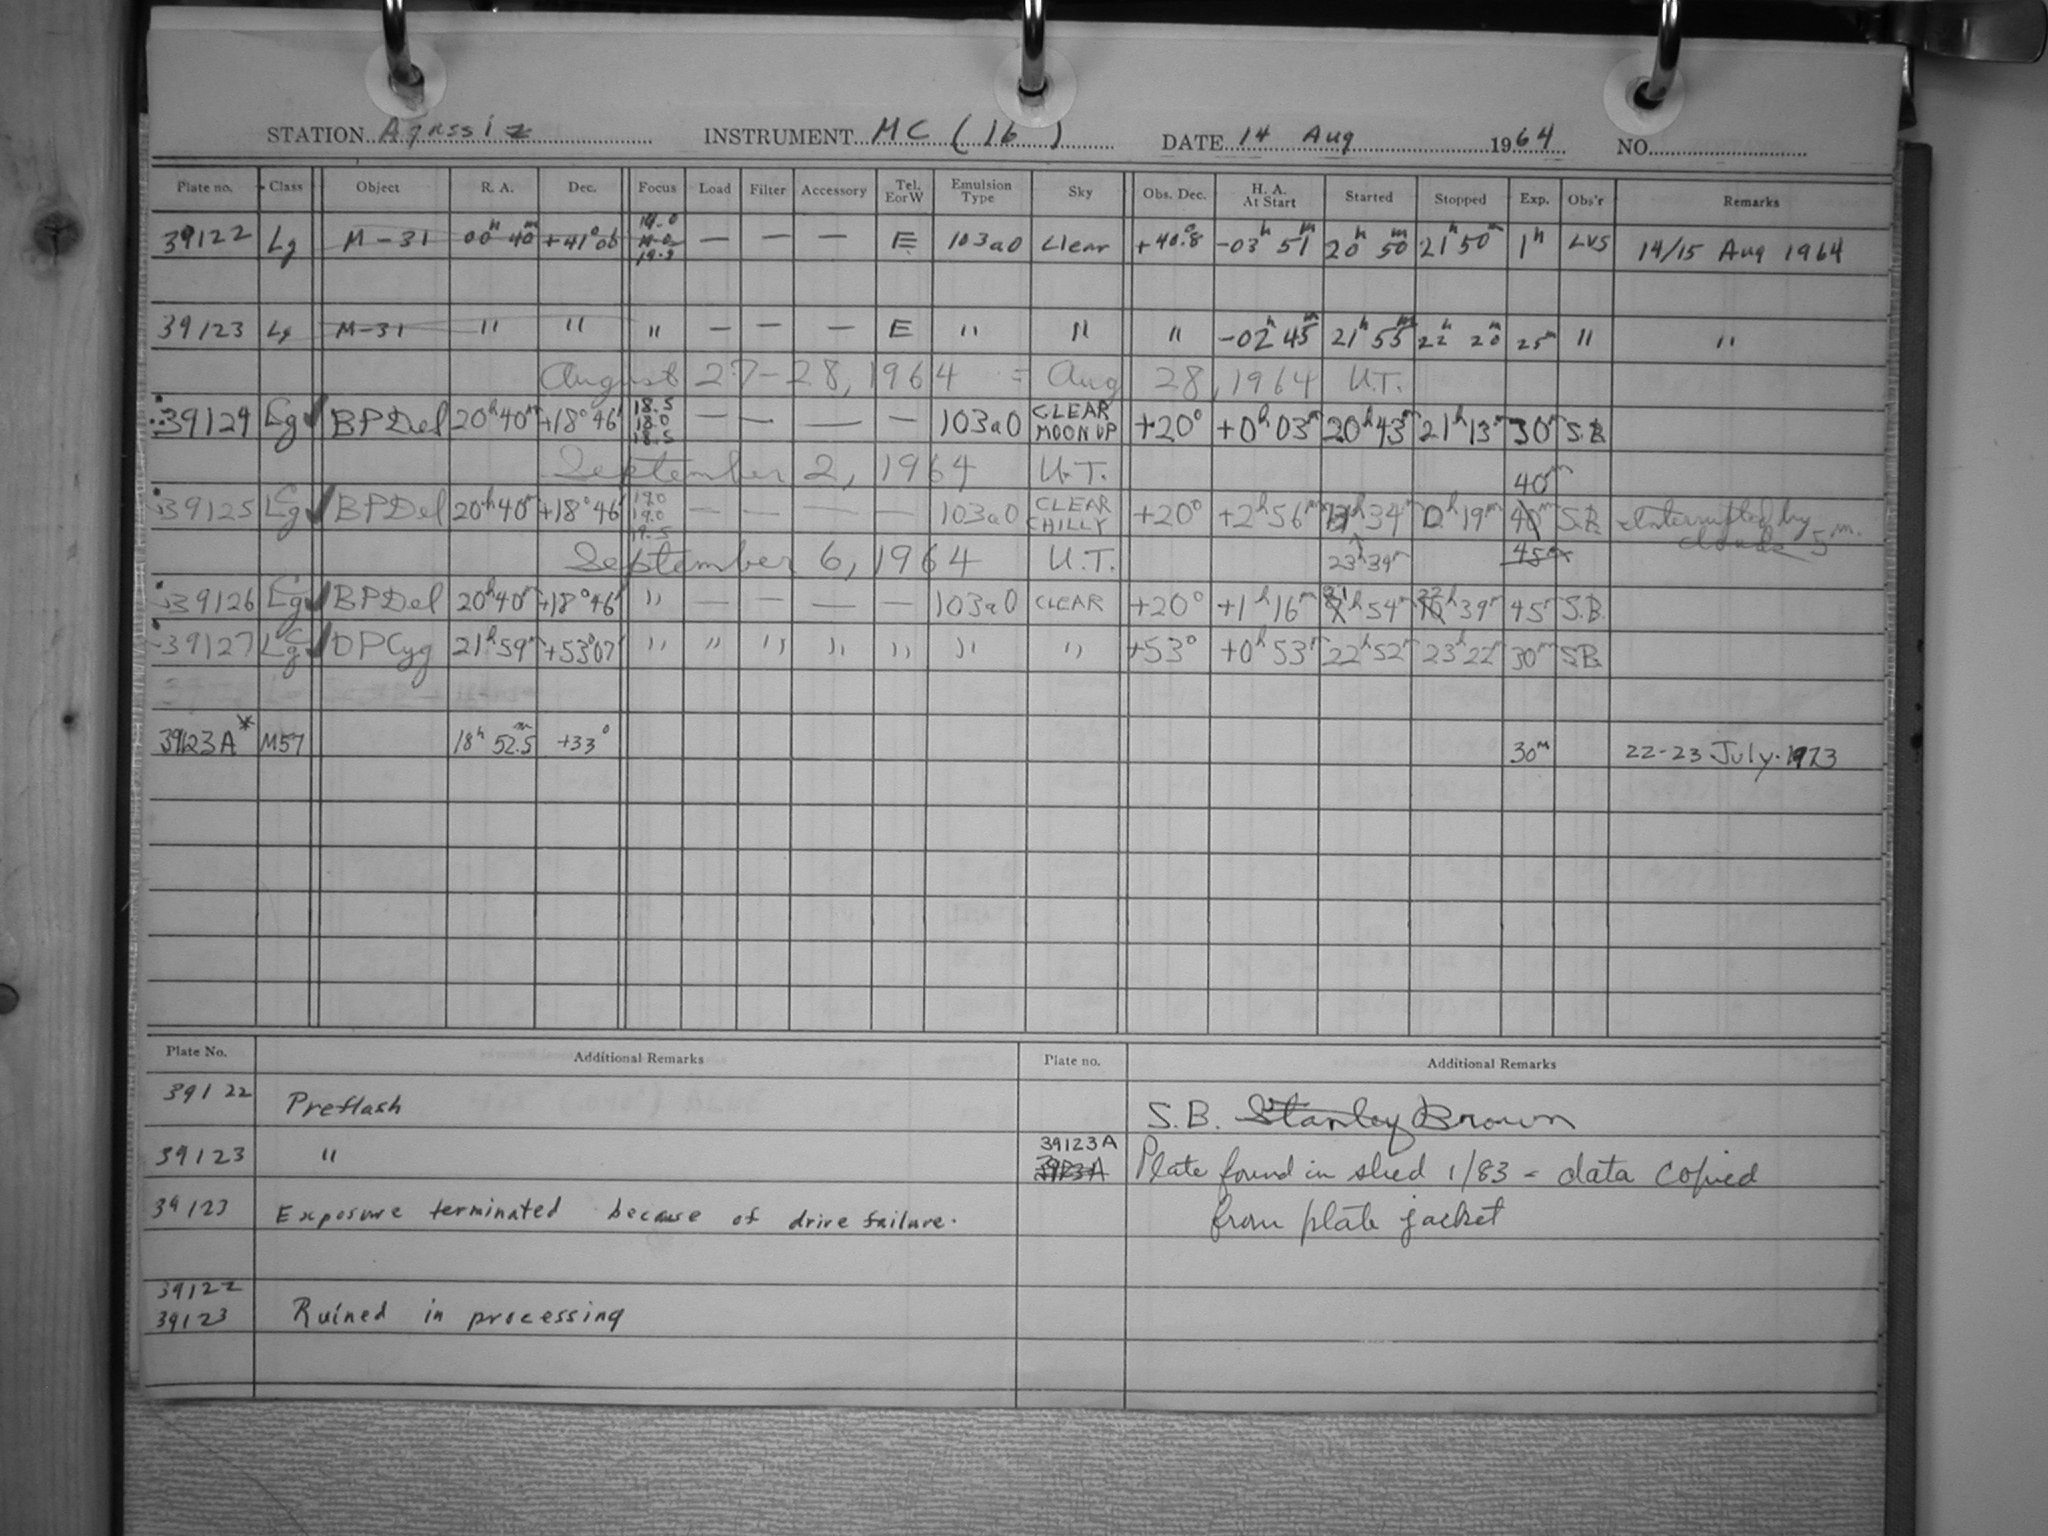 STATION Agassiz INSTRUMENT MC (16) DATE 14 Aug 1964 NO.
Plate no. Class Object R. A. Dec. Focus Load Filter Accessory Tel. E or W Emulsion Type Sky Obs. Dec. H. A. At Start Started Stopped Exp. Obs'r Remarks
39122 Lg M-31 00h 40m +41°06 — — — E 103a0 Clear +40.8° -03h 51m 20h 50m 21h 50m 1h LVS 14/15 Aug 1964
39123 Lg M-31 " " " — — — E " " " -02h 45m 21h 55m 22h 20m 25m " "
August 27-28, 1964 = Aug 28, 1964 U.T.
39124 Lg ✓ BPDel 20h40m +18°46' 18.5 18.0 18.5 — — — — 103a0 CLEAR MOON UP +20° +0h 03m 20h 43m 21h 13m 30m S.B.
September 2, 1964 U.T.
39125 Lg ✓ BPDel 20h40m +18°46' 19.0 19.0 19.5 — — — — 103a0 CLEAR CHILLY +20° +2h 56m 34m 0h 19m 40m 40m S.B. Interrupted by clouds 5m.
23h39m 45m
September 6, 1964 U.T.
39126 Lg ✓ BPDel 20h40m +18°46' " — — — — 103a0 CLEAR +20° +1h 16m 21h 54m 22h 39m 45m S.B.
39127 Lg ✓ DPCyg 21h59m +53°07' " " " " " " " +53° +0h 53m 22h 52m 23h 22m 30m S.B.
39123A* M57 18h 52.5m +33° 30m 22-23 July. 1973
Plate No. Additional Remarks Plate no. Additional Remarks
39122 Preflash S.B. Stanley Brown
39123 " 39123A 39123A Plate found in shed 1/83 - data copied
39123 Exposure terminated because of drive failure. from plate jacket
39122
39123 Ruined in processing